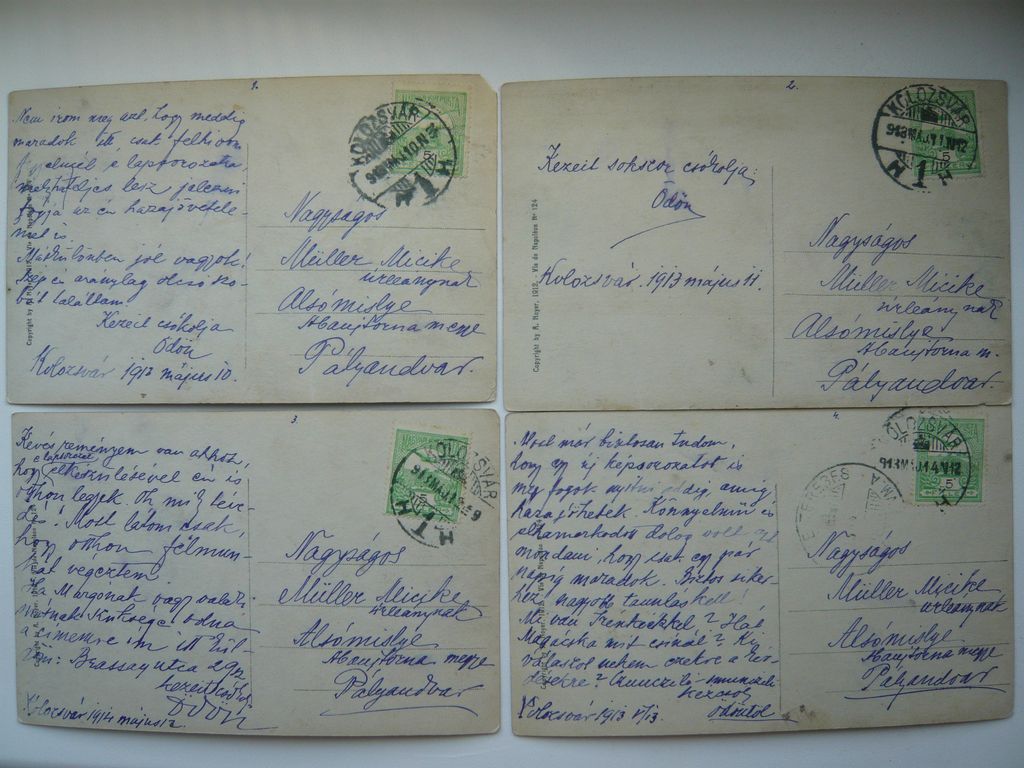 1.
Nem irom meg azt, hogy meddig
maradok itt, csak felhivom
e lapsorozata
lesz jelezni
fogja az én hazajövetele-
met is.
Máskülönben jól vagyok!
Szép és aránylag olcsó szo-
bát találtam
Kezeit csókolja
Ödön
Kolozsvár 1913 május 10.
KOLOZSVÁR
Nagyságos
Müller Micike
úrleánynak
Alsómislye
Abaujtorna megye
Pályaudvar.
2.
Kezeit sokszor csókolja:
Ödön
Kolozsvár. 1913 május 11.
Copyright by A. Noyer, 1912. Via de Napoléon Nr 124
KOLOZSVÁR
Nagyságos
Müller Micike
úrleánynak
Alsómislye
Abaujtorna m.
Pályaudvar.
3.
Kevés reményem van ahhoz,
hogy e lapsorozat elkészülésével én is
otthon legyek.
Most látom csak
hogy otthon félmun-
kát végeztem
Ha Margónak vagy valaki
másnak szüksége volna
a címemre im itt
Brassay utca
Kezeit csókolja
ÖDÖN
Kolozsvár 1914 május 12.
KOLOZSVÁR
Nagyságos
Müller Micike
úrleánynak
Alsómislye
Abaujtorna megye
Pályaudvar
4.
Most már biztosan tudom,
hogy egy új képsorozatot is
meg fogok nyitni addig, amig
hazajöhetek. Könnyelmü és
elhamarkodott dolog volt azt
mondani, hogy csak egy pár
napig maradok. Biztos siker-
hez nagyon tanulás kell!
Mi van Frénkeckkel? Hát
Magácska mit csinál? Ki
válaszol nekem ezekre a kér-
désekre?
kézcsók
Ödöntől
Kolozsvár 1913 V/13.
KOLOZSVÁR
Nagyságos
Müller Micike
úrleánynak
Alsómislye
Abaujtorna megye
Pályaudvar